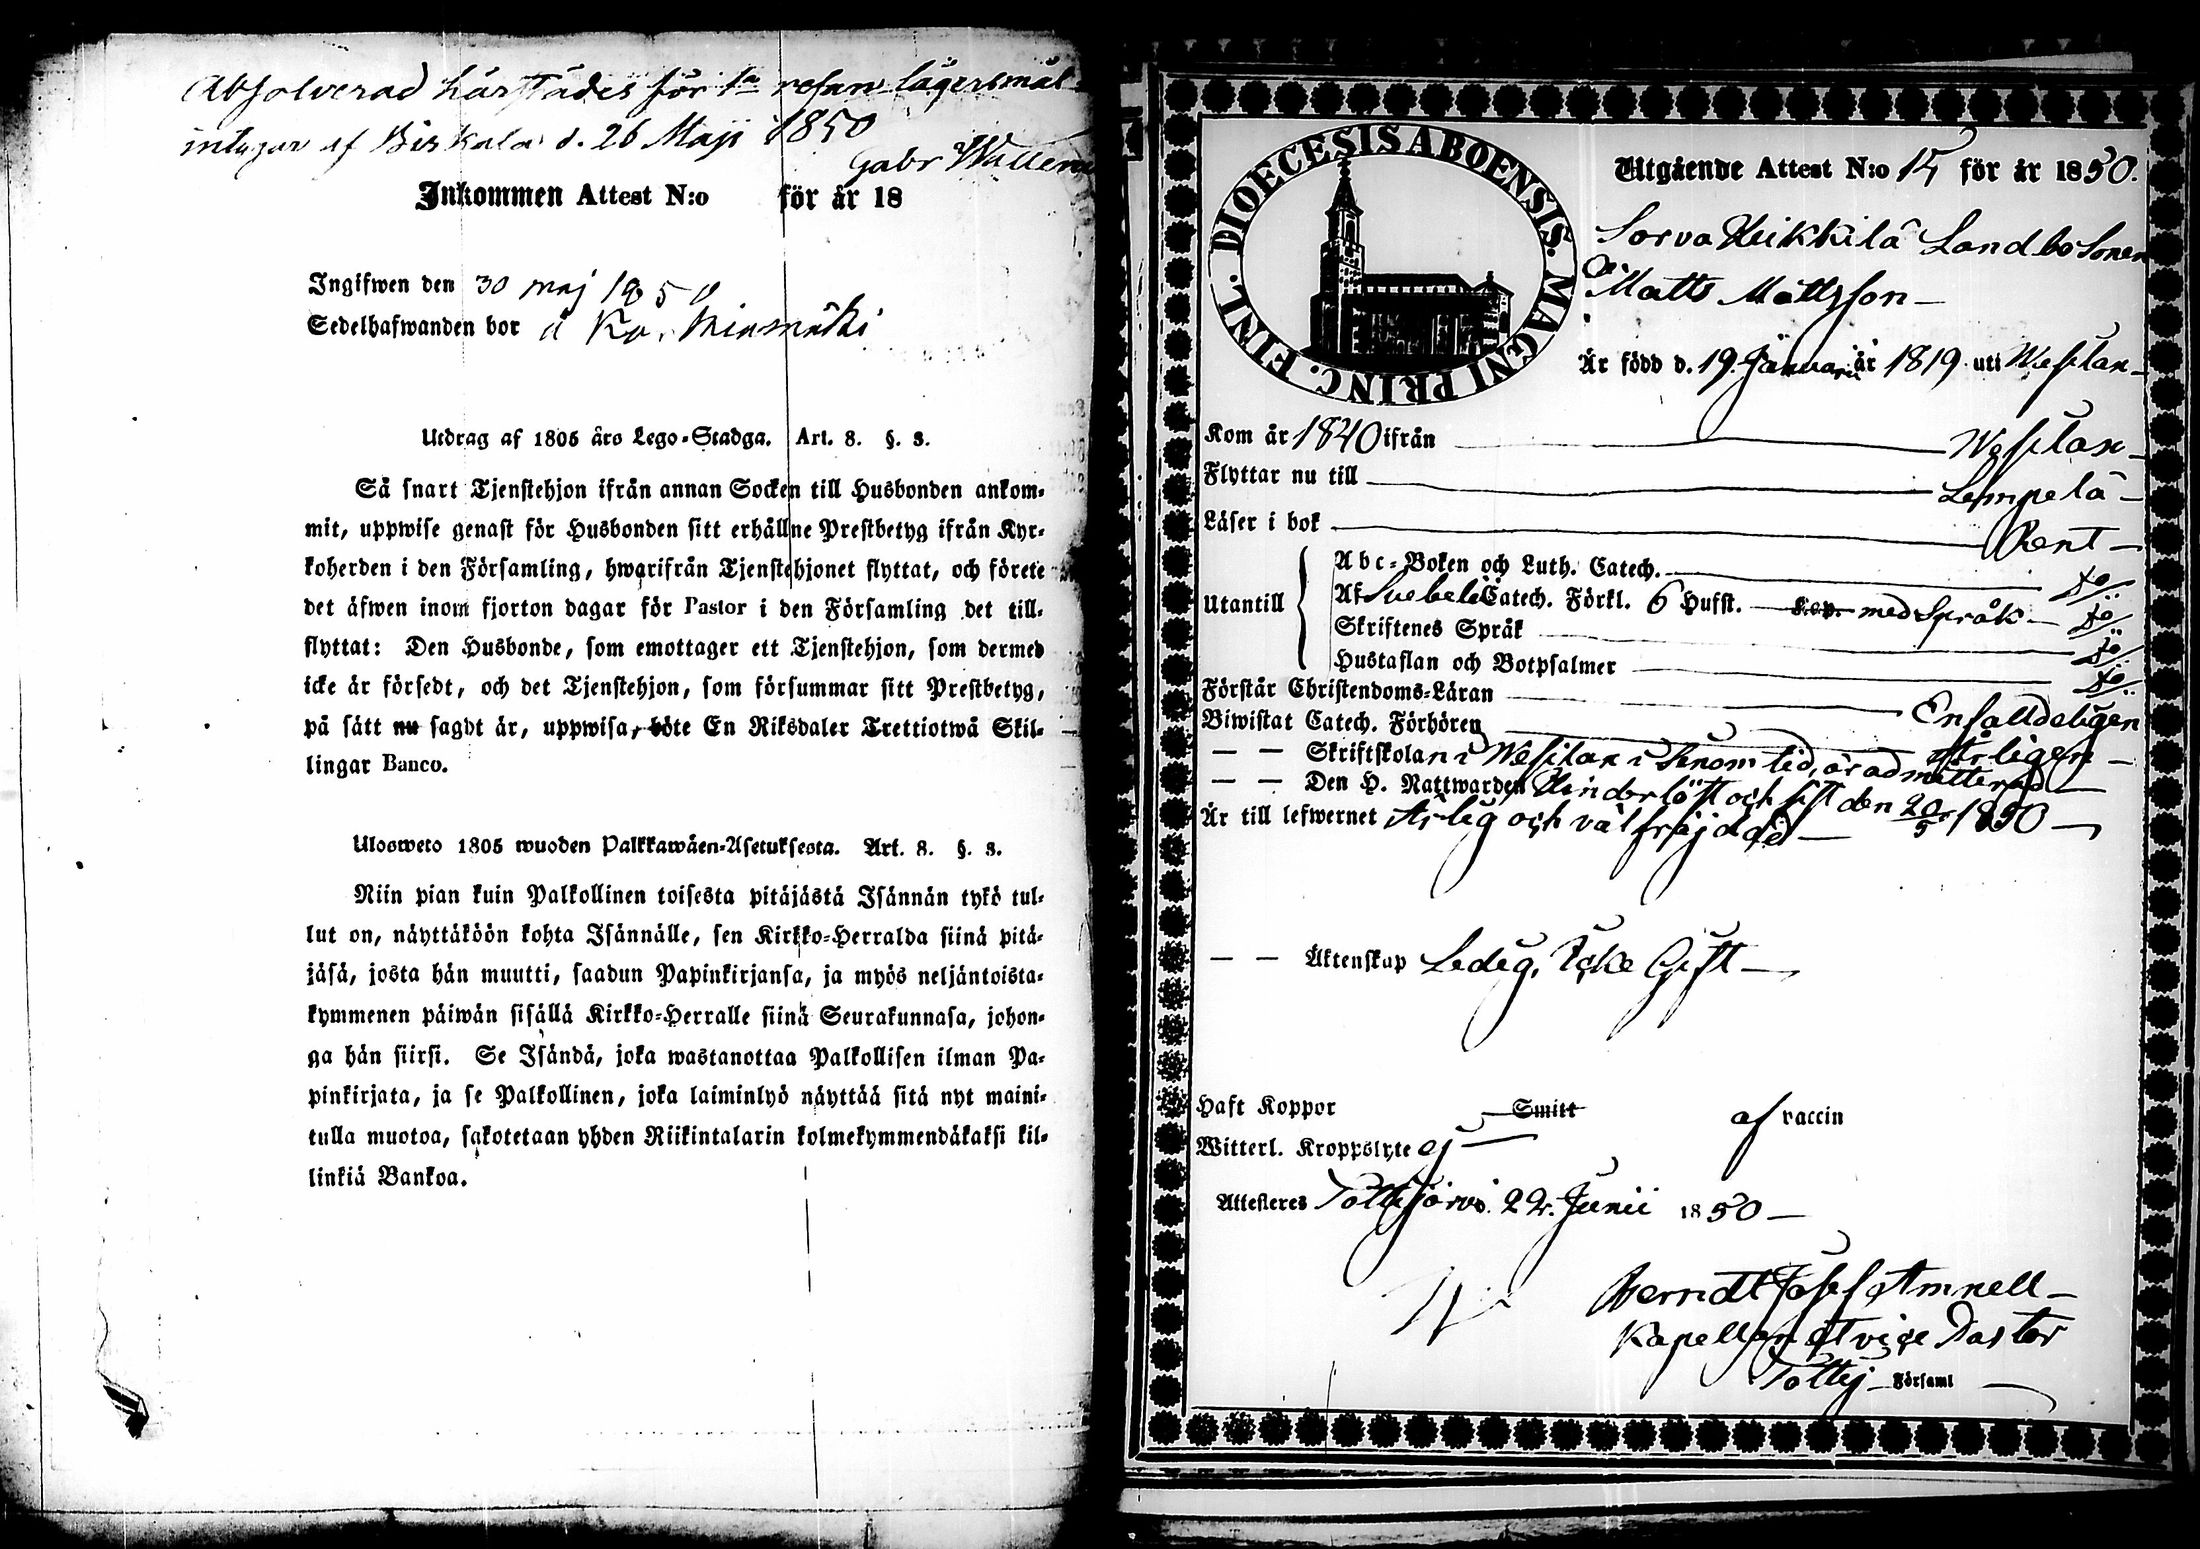 Absolverad härstädes för 1a resan lägersmål
af Birkala d. 26 Maji 1850
Gabr
Inkommen Attest N:o för år 18
Ingifwen den 30 maj 1850
Sedelhafwanden bor å
Utdrag af 1805 års Lego-Stadga. Art. 8. §. 3.
Så snart Tjenstehjon ifrån annan Socken till Husbonden ankom-
mit, uppwise genast för Husbonden sitt erhållne Prestbetyg ifrån Kyr-
koherden i den Församling, hwarifrån Tjenstehjonet flyttat, och förete
det äfwen inom fjorton dagar för Pastor i den Församling det till-
flyttat: Den Husbonde, som emottager ett Tjenstehjon, som dermed
icke är försedt, och det Tjenstehjon, som försummar sitt Prestbetyg,
på sätt nu sagdt är, uppwisa, böte En Riksdaler Trettiotwå Skil-
lingar Banco.
Ulosweto 1805 wuoden Palkkawäen-Asetuksesta. Art. 8. §. 3.
Niin pian kuin Palkollinen toisesta pitäjästä Isännän tykö tul-
lut on, näyttäköön kohta Isännälle, sen Kirkko-Herralda siinä pitä-
jäsä, josta hän muutti, saadun Papinkirjansa, ja myös neljäntoista-
kymmenen päiwän sisällä Kirkko-Herralle siinä Seurakunnasa, johon-
ga hän siirsi. Se Isändä, joka wastanottaa Palkollisen ilman Pa-
pinkirjata, ja se Palkollinen, joka laiminlyö näyttää sitä nyt maini-
tulla muotoa, sakotetaan yhden Riikintalarin kolmekymmendäkaksi kil-
linkiä Bankoa.
DIOECESIS ABOENSIS. MAGNI PRINC. FINL.
Utgående Attest N:o 15 för år 1850.
Sorva Heikkilä Landbo Sonen
Matts Mattsson
Är född d. 19 Januarii år 1819 uti Wesilax
Kom år 1840 ifrån Wesilax
Flyttar nu till Lempelä
Läser i bok Rent
Utantill
Abc-Boken och Luth. Catech. do
Af Svebelii Catech. Förkl. 6 Hufst. Kap. med Språk do
Skriftenes Språk do
Hustaflan och Botpsalmer do
Förstår Christendoms-Läran Enfalldeligen
Biwistat Catech. Förhören Årligen
— — Skriftskolan i Wesilax i sinom tid, är admitterad
— — Den H. Nattwarden Hinderlöst och sist den 20/5 1850
Är till lefwernet Ärlig och välfräjdad
— — Äktenskap Ledig, Icke Gift
Haft Koppor Smitt af vaccin
Witterl. Kroppslyte ej
Attesteres Tottijärvi 22 Junii 1850
Berndt Josef Amnell
Kapellan et vice Pastor
Tottij Församl